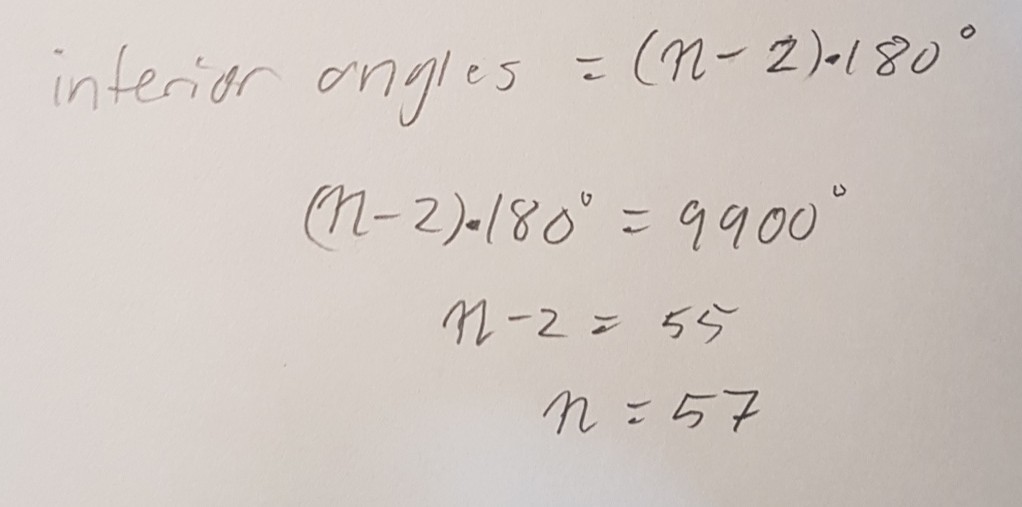 interior angles = (n-2)•180°
(n-2)•180° = 9900°
n-2 = 55
n = 57